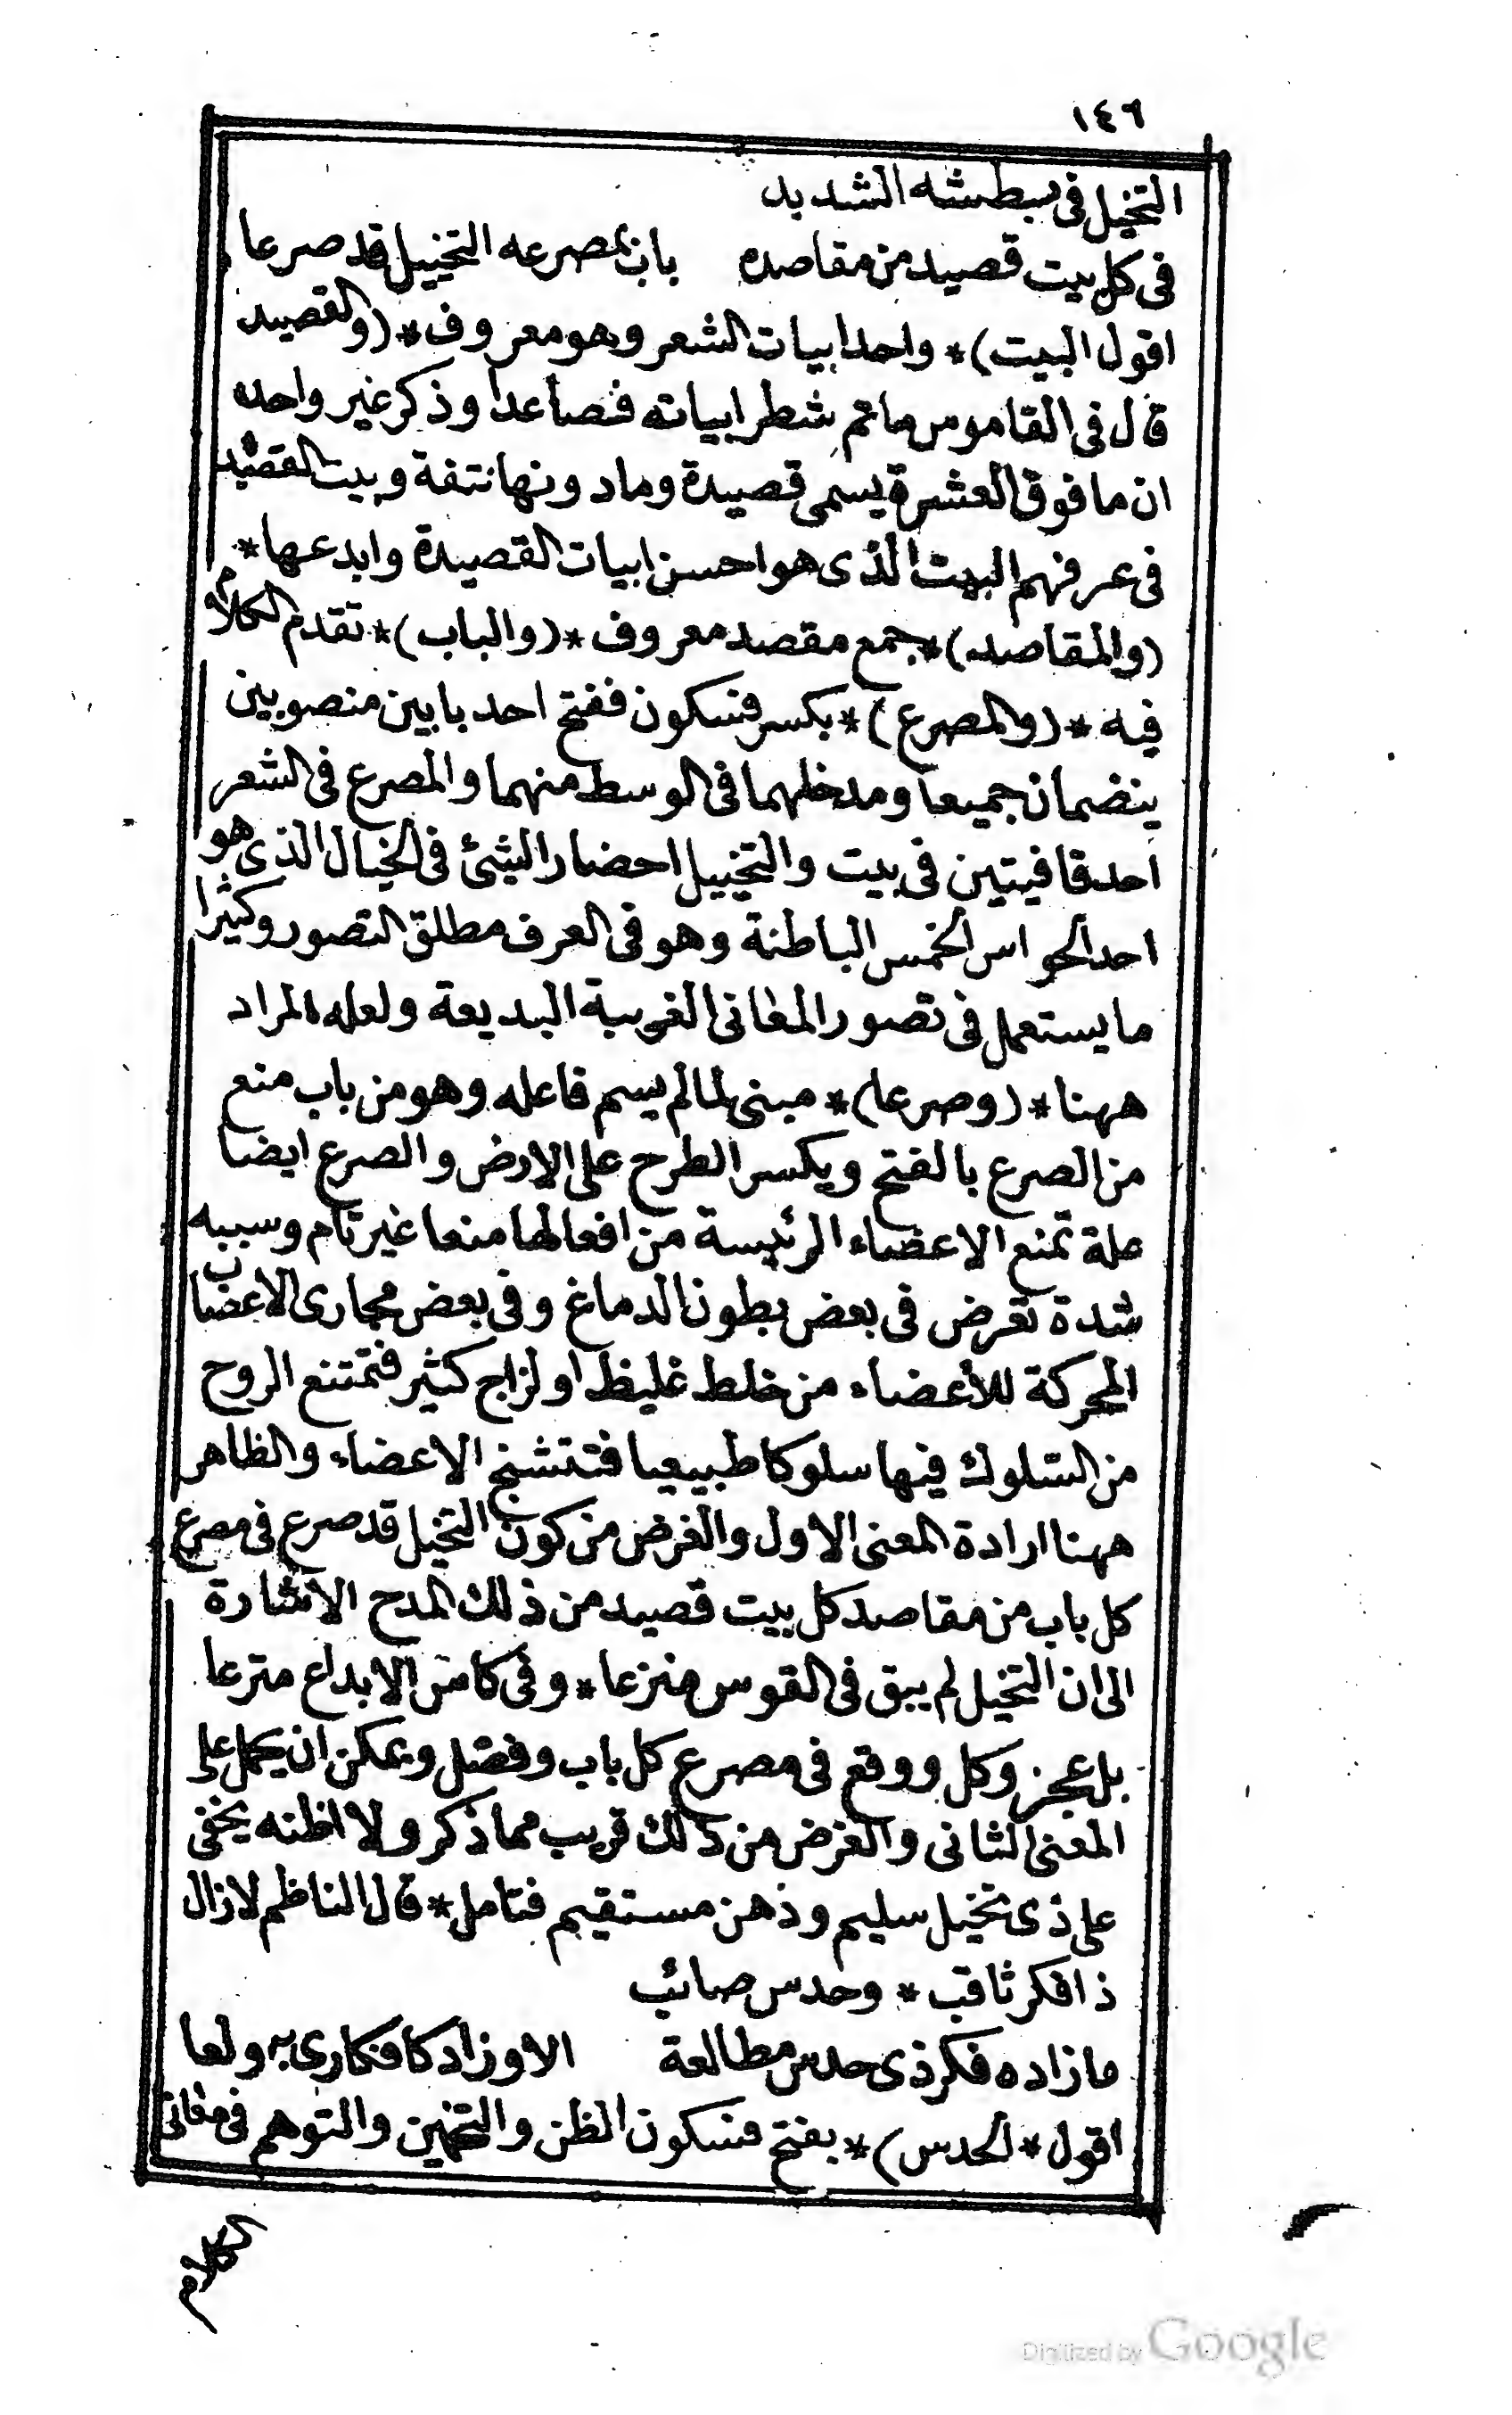 ١٤٦
التخيل فى بطشه الشديد
فى كل بيت قصيد من مقاصده باب بمصرعه التخييل قد صرعا
اقول البيت) * واحد ابيات الشعر وهو معروف * (والقصيد
قال فى القاموس ما تم شطر ابياته فصاعدا وذكر غير واحد
ان ما فوق العشرة يسمى قصيدة وما دونها نتفة وبيت القصيد
فى عرفهم البيت الذى هو احسن ابيات القصيدة وابدعها *
(والمقاصد) * جمع مقصد معروف * (والباب) * تقدم الكلام
فيه * (والمصرع) * بكسر فسكون ففتح احد بابين منصوبين
ينضمان جميعا ومدخلهما فى الوسط منهما والمصرع فى الشعر
احد قافيتين فى بيت والتخييل احضار الشئ فى الخيال الذى هو
احد الحواس الخمس الباطنة وهو فى العرف مطلق التصور وكثيرا
ما يستعمل فى تصور المعانى الغريبة البديعة ولعله المراد
ههنا * (وصرعا) * مبنى لما لم يسم فاعله وهو من باب منع
من الصرع بالفتح ويكسر الطرح على الارض والصرع ايضا
علة تمنع الاعضاء الرئيسة من افعالها منعا غير تام وسببه
شدة تعرض فى بعض بطون الدماغ وفى بعض مجارى الاعصاب
المحركة للأعضاء من خلط غليظ او لزاج كثير فتمتنع الروح
من السلوك فيها سلوكا طبيعيا فتتشنج الاعضاء والظاهر
ههنا ارادة المعنى الاول والغرض من كون التخيل قد صرع فى مصرع
كل باب من مقاصد كل بيت قصيد من ذلك المدح الاشارة
الى ان التخيل لم يبق فى القوس منزعا * وفى كاس الابداع مترعا
بل عجز وكل ووقع فى مصرع كل باب وفصل ويمكن ان يحمل على
المعنى الثانى والغرض من ذلك قريب مما ذكر ولا اظنه يخفى
على ذى تخيل سليم وذهن مستقيم فتامل * قال الناظم لازال
ذا فكر ثاقب * وحدس صائب
ما زاده فكر ذى حدس مطالعة الا وزاد كافكارى به ولعا
اقول * الحدس) * بفتح فسكون الظن والتخمين والتوهم فى معانى
الكلام
Digitized by Google